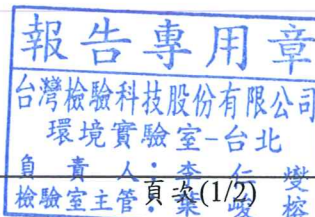 報告專用章
台灣檢驗科技股份有限公司
環境實驗室-台北
負責人：李仁燮
檢驗室主管：葉駿榕
頁次(1/2)